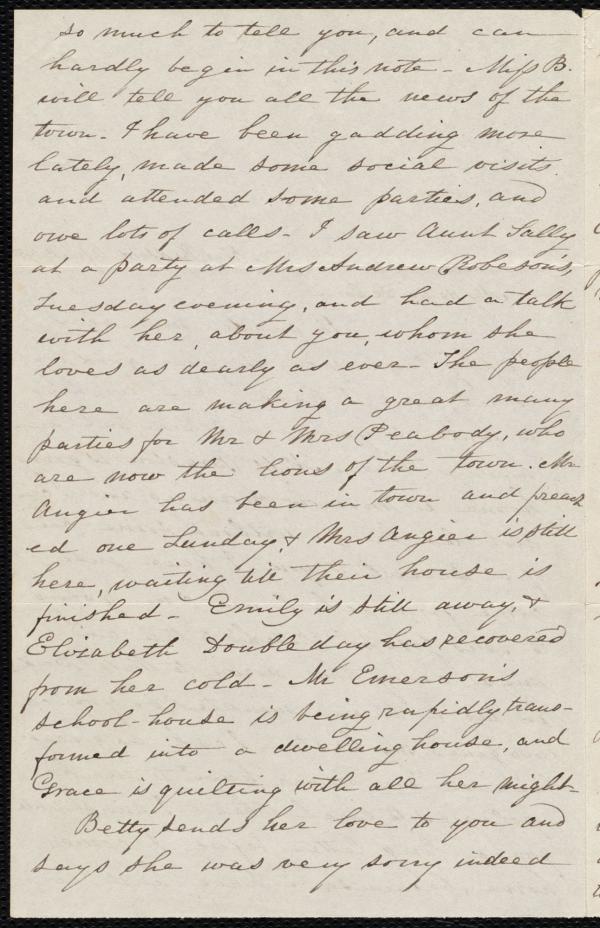 so much to tell you, and can
hardly begin in this note - Miss B.
will tell you all the news of the
town - I have been gadding more
lately, made some social visits
and attended some parties, and
owe lots of calls - I saw Aunt Sally
at a party at Mrs Andrew Robeson's,
Tuesday evening, and had a talk
with her, about you, whom she
loves as dearly as ever - The people
here are making a great many
parties for Mr & Mrs Peabody, who
are now the lions of the town. Mr
Angier has been in town and preach
ed one Sunday, & Mrs Angier is still
here, waiting till their house is
finished - Emily is still away, &
Elizabeth Doubleday has recovered
from her cold - Mr Emerson's
school-house is being rapidly trans-
formed into a dwelling house, and
Grace is quilting with all her might -
Betty sends her love to you and
says she was very sorry indeed